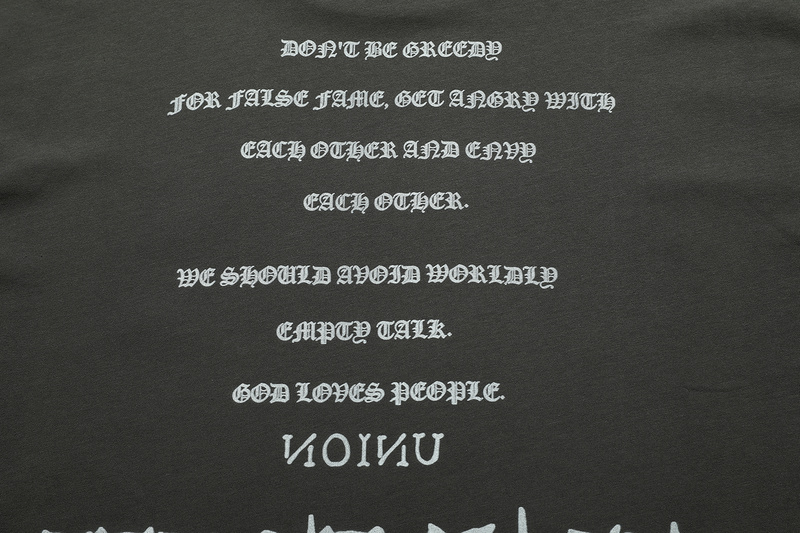 DON'T BE GREEDY
FOR FALSE FAME, GET ANGRY WITH
EACH OTHER AND ENVY
EACH OTHER.
WE SHOULD AVOID WORLDLY
EMPTY TALK.
GOD LOVES PEOPLE.
UNION